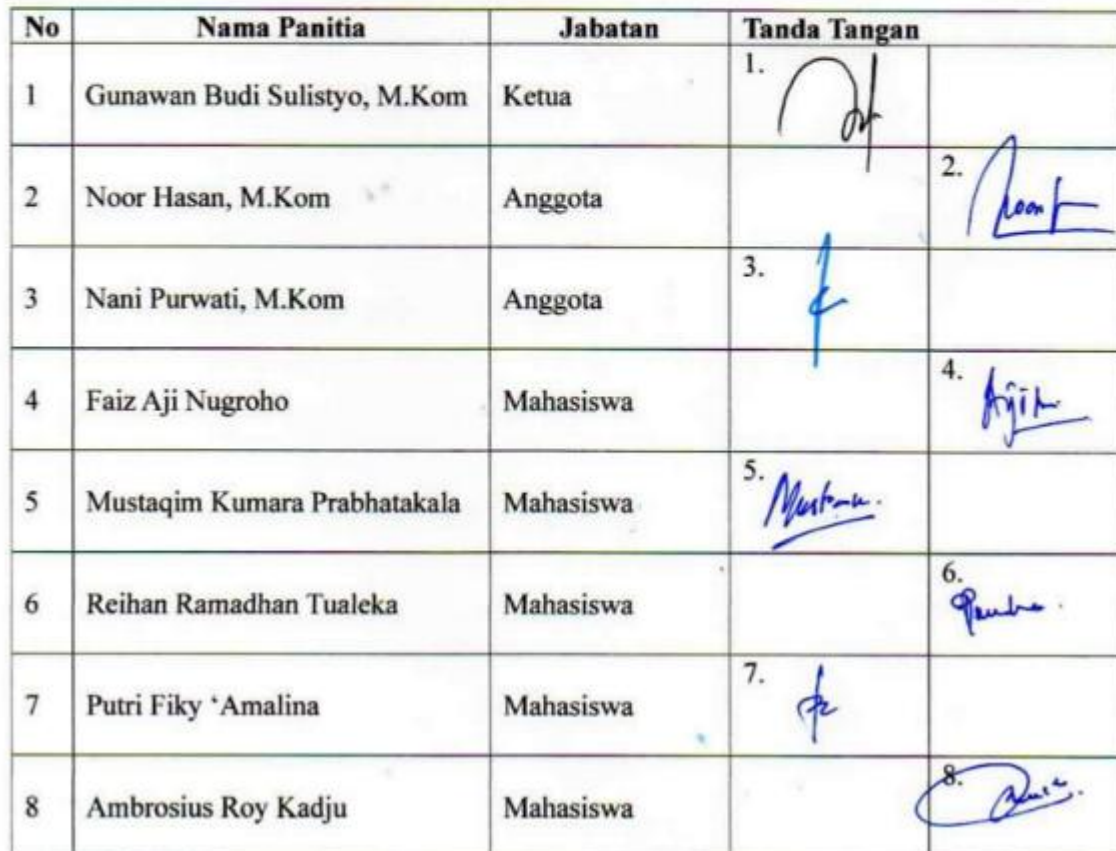 No Nama Panitia Jabatan Tanda Tangan
1 Gunawan Budi Sulistyo, M.Kom Ketua 1.
2 Noor Hasan, M.Kom Anggota 2.
3 Nani Purwati, M.Kom Anggota 3.
4 Faiz Aji Nugroho Mahasiswa 4.
5 Mustaqim Kumara Prabhatakala Mahasiswa 5.
6 Reihan Ramadhan Tualeka Mahasiswa 6.
7 Putri Fiky ‘Amalina Mahasiswa 7.
8 Ambrosius Roy Kadju Mahasiswa 8.